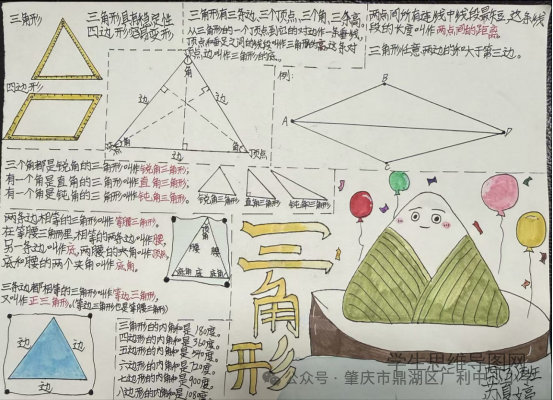 三角形
三角形具有稳定性
四边形容易变形
四边形
三角形有三条边,三个顶点,三个角,三条高。
从三角形的一个顶点到它的对边作一条垂线,
顶点和垂足之间的线段叫作三角形的高,这条对
边叫作三角形的底。
两点间所有连线中线段最短,这条线
段的长度叫作两点间的距离
三角形任意两边的和大于第三边。
顶点
角
边
边
角
角
顶点
边
顶点
例:
A
B
C
D
三个角都是锐角的三角形叫作锐角三角形;
有一个角是直角的三角形叫作直角三角形;
有一个角是钝角的三角形叫作钝角三角形。
锐角三角形
直角三角形
钝角三角形
两条边相等的三角形叫作等腰三角形。
在等腰三角形里,相等的两条边叫作腰,
另一条边叫作底,两腰的夹角叫作顶角,
底和腰的两个夹角叫作底角。
顶角
腰
腰
底角
底
底角
三条边都相等的三角形叫作等边三角形,
又叫作正三角形。(等边三角形也是等腰三角形)
边
边
边
三角形的内角和是180度。
四边形的内角和是360度。
五边形的内角和是540度。
六边形的内角和是720度。
七边形的内角和是900度。
八边形的内角和是1080度。
三角形
学生思维导图网
公众号·肇庆市鼎湖区广利中心